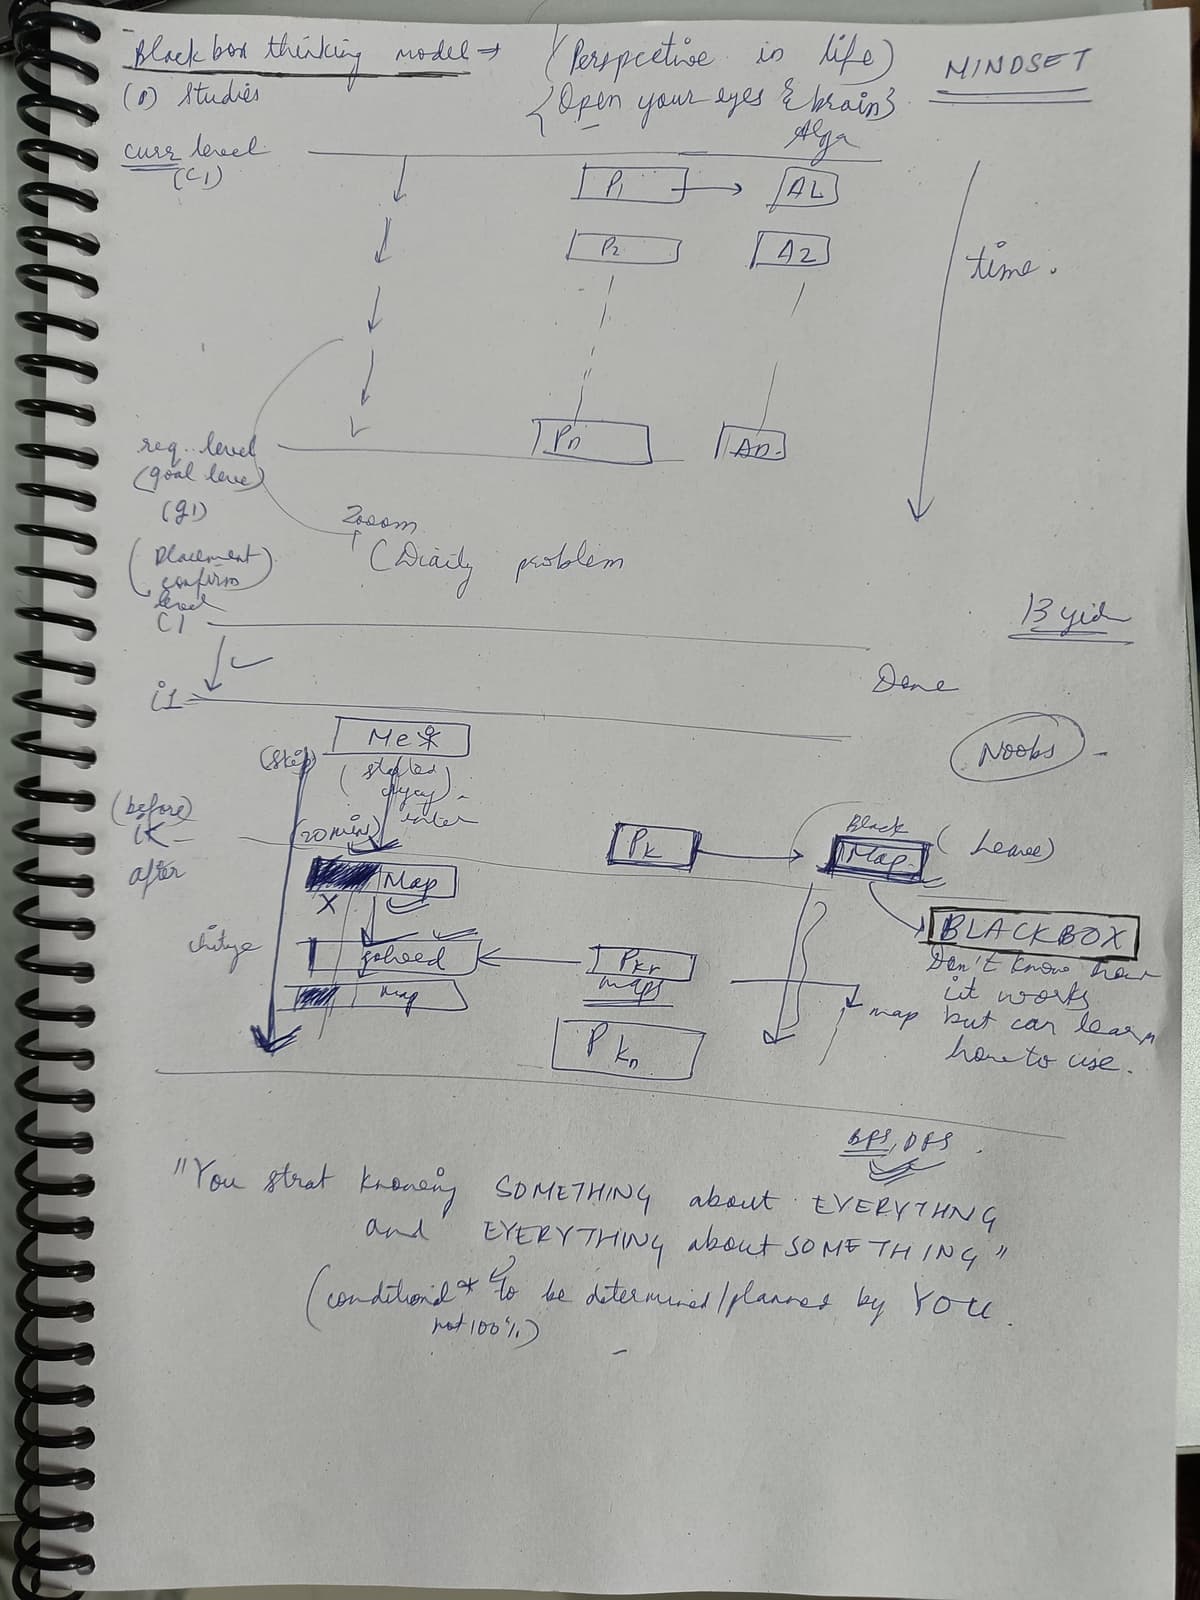 Black box thinking model → (Perspective in life) MINDSET
(1) Studies {Open your eyes & brain}
Algo
curr level
(C1)
P1 → A1
P2 A2
time.
req. level Pn An.
(goal level)
(g1)
Zooom
(Placement (Diaily problem
confirm
level)
C1
Done
i1
Me
Noobs
(Skip) (started
(before) Black
iK (20 min) Pk → Map (Leave)
after Map
X BLACKBOX
solved ← Pkr Don't know how
map maps it works
map but can learn
P kn how to use.
BFS, DFS
"You strat knowing SOMETHING about EVERYTHNG
and EVERYTHING about SOMETHING"
(conditional * to be determined/planned by YOU.
not 100%)